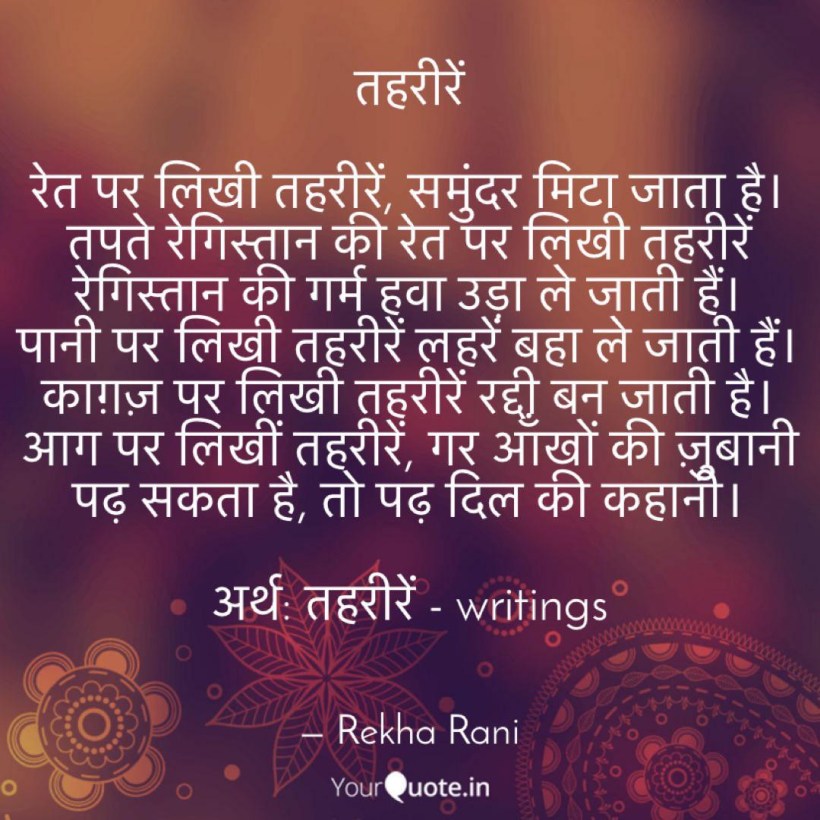 तहरीरें
रेत पर लिखी तहरीरें, समुंदर मिटा जाता है।
तपते रेगिस्तान की रेत पर लिखी तहरीरें
रेगिस्तान की गर्म हवा उड़ा ले जाती हैं।
पानी पर लिखी तहरीरें लहरें बहा ले जाती हैं।
काग़ज़ पर लिखी तहरीरें रद्दी बन जाती है।
आग पर लिखीं तहरीरें, गर आँखों की ज़ुबानी
पढ़ सकता है, तो पढ़ दिल की कहानी।
अर्थ: तहरीरें - writings
– Rekha Rani
YourQuote.in